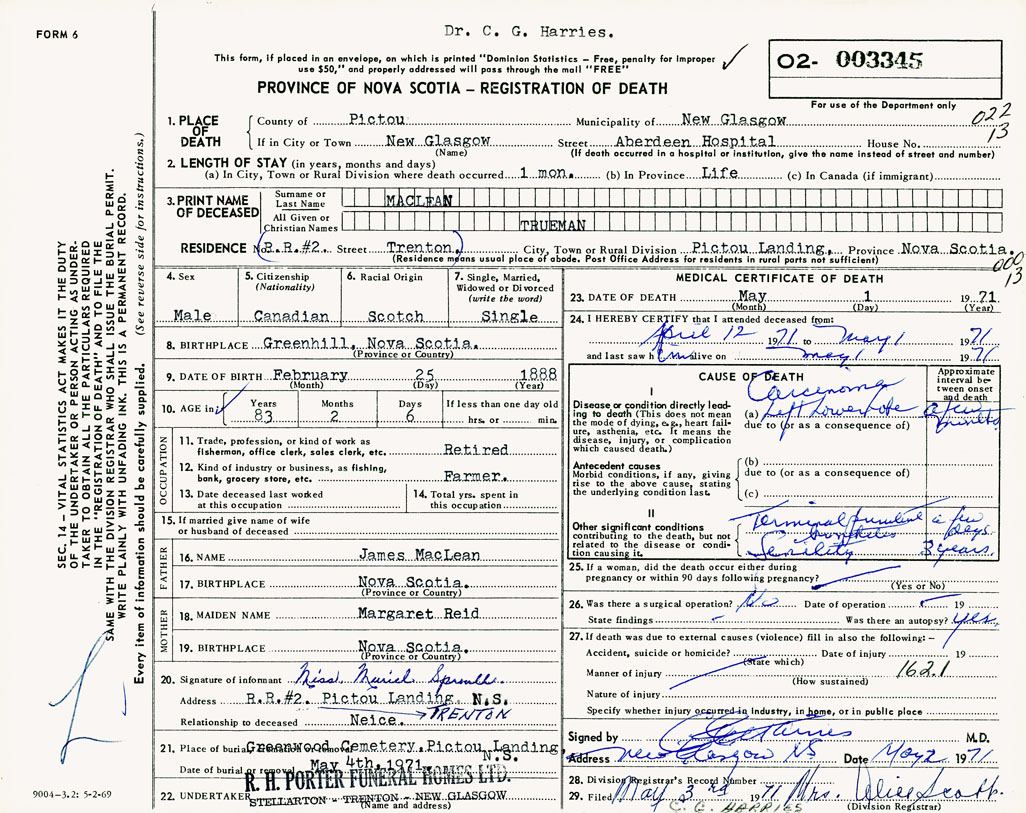 FORM 6
Dr. C. G. Harries.
This form, if placed in an envelope, on which is printed "Dominion Statistics – Free, penalty for improper
use $50," and properly addressed will pass through the mail "FREE"
PROVINCE OF NOVA SCOTIA – REGISTRATION OF DEATH
02- 003345
For use of the Department only
022
13
1. PLACE OF DEATH
County of Pictou Municipality of New Glasgow
If in City or Town New Glasgow Street Aberdeen Hospital House No.
(Name) (If death occurred in a hospital or institution, give the name instead of street and number)
2. LENGTH OF STAY (in years, months and days)
(a) In City, Town or Rural Division where death occurred 1 mon. (b) In Province Life (c) In Canada (if immigrant)
3. PRINT NAME OF DECEASED
Surname or Last Name MACLEAN
All Given or Christian Names TRUEMAN
RESIDENCE R.R.#2. Street Trenton, City, Town or Rural Division Pictou Landing, Province Nova Scotia.
(Residence means usual place of abode. Post Office Address for residents in rural parts not sufficient)
000
13
SEC. 14 – VITAL STATISTICS ACT MAKES IT THE DUTY
OF THE UNDERTAKER OR PERSON ACTING AS UNDER-
TAKER TO OBTAIN ALL THE PARTICULARS REQUIRED
IN THE "REGISTRATION OF DEATH" AND TO FILE THE
SAME WITH THE DIVISION REGISTRAR WHO SHALL ISSUE THE BURIAL PERMIT.
WRITE PLAINLY WITH UNFADING INK. THIS IS A PERMANENT RECORD.
Every item of information should be carefully supplied. (See reverse side for instructions.)
4. Sex Male
5. Citizenship (Nationality) Canadian
6. Racial Origin Scotch
7. Single, Married, Widowed or Divorced (write the word) Single
8. BIRTHPLACE Greenhill, Nova Scotia.
(Province or Country)
9. DATE OF BIRTH February 25 1888
(Month) (Day) (Year)
10. AGE in Years 83 Months 2 Days 6 If less than one day old hrs. or min.
OCCUPATION
11. Trade, profession, or kind of work as
fisherman, office clerk, sales clerk, etc. Retired
12. Kind of industry or business, as fishing,
bank, grocery store, etc. Farmer.
13. Date deceased last worked
at this occupation
14. Total yrs. spent in
this occupation
15. If married give name of wife
or husband of deceased
FATHER
16. NAME James MacLean
17. BIRTHPLACE Nova Scotia.
(Province or Country)
MOTHER
18. MAIDEN NAME Margaret Reid
19. BIRTHPLACE Nova Scotia.
(Province or Country)
20. Signature of informant Miss Muriel
Address R.R.#2. Pictou Landing, N.S.
TRENTON
Relationship to deceased Neice.
21. Place of burial Greenwood Cemetery, Pictou Landing N.S.
Date of burial or removal May 4th, 1971
R. H. PORTER FUNERAL HOMES LTD.
22. UNDERTAKER STELLARTON – TRENTON – NEW GLASGOW
(Name and address)
9004-3.2: 5-2-69
MEDICAL CERTIFICATE OF DEATH
23. DATE OF DEATH May 1 1971
(Month) (Day) (Year)
24. I HEREBY CERTIFY that I attended deceased from:
April 12 1971 to May 1 1971
and last saw him alive on May 1 1971
CAUSE OF DEATH
Approximate interval between onset and death
I
Disease or condition directly lead-
ing to death (This does not mean
the mode of dying, e.g., heart fail-
ure, asthenia, etc. It means the
disease, injury, or complication
which caused death.)
Carcinoma
(a) Left Lower lobe a few
due to (or as a consequence of)
Antecedent causes
Morbid conditions, if any, giving
rise to the above cause, stating
the underlying condition last.
(b)
due to (or as a consequence of)
(c)
II
Other significant conditions
contributing to the death, but not
related to the disease or condi-
tion causing it.
Terminal purulent a few
days.
Senility 3 years.
25. If a woman, did the death occur either during
pregnancy or within 90 days following pregnancy?
(Yes or No)
26. Was there a surgical operation? No Date of operation 19
State findings Was there an autopsy? yes.
27. If death was due to external causes (violence) fill in also the following: –
Accident, suicide or homicide? Date of injury 19
(State which)
Manner of injury 162.1
(How sustained)
Nature of injury
Specify whether injury occurred in industry, in home, or in public place
Signed by CG Harries M.D.
Address New Glasgow NS Date May 2 1971
28. Division Registrar's Record Number
29. Filed May 3rd 1971 Mrs. Alice Scott.
C. G. HARRIES (Division Registrar)